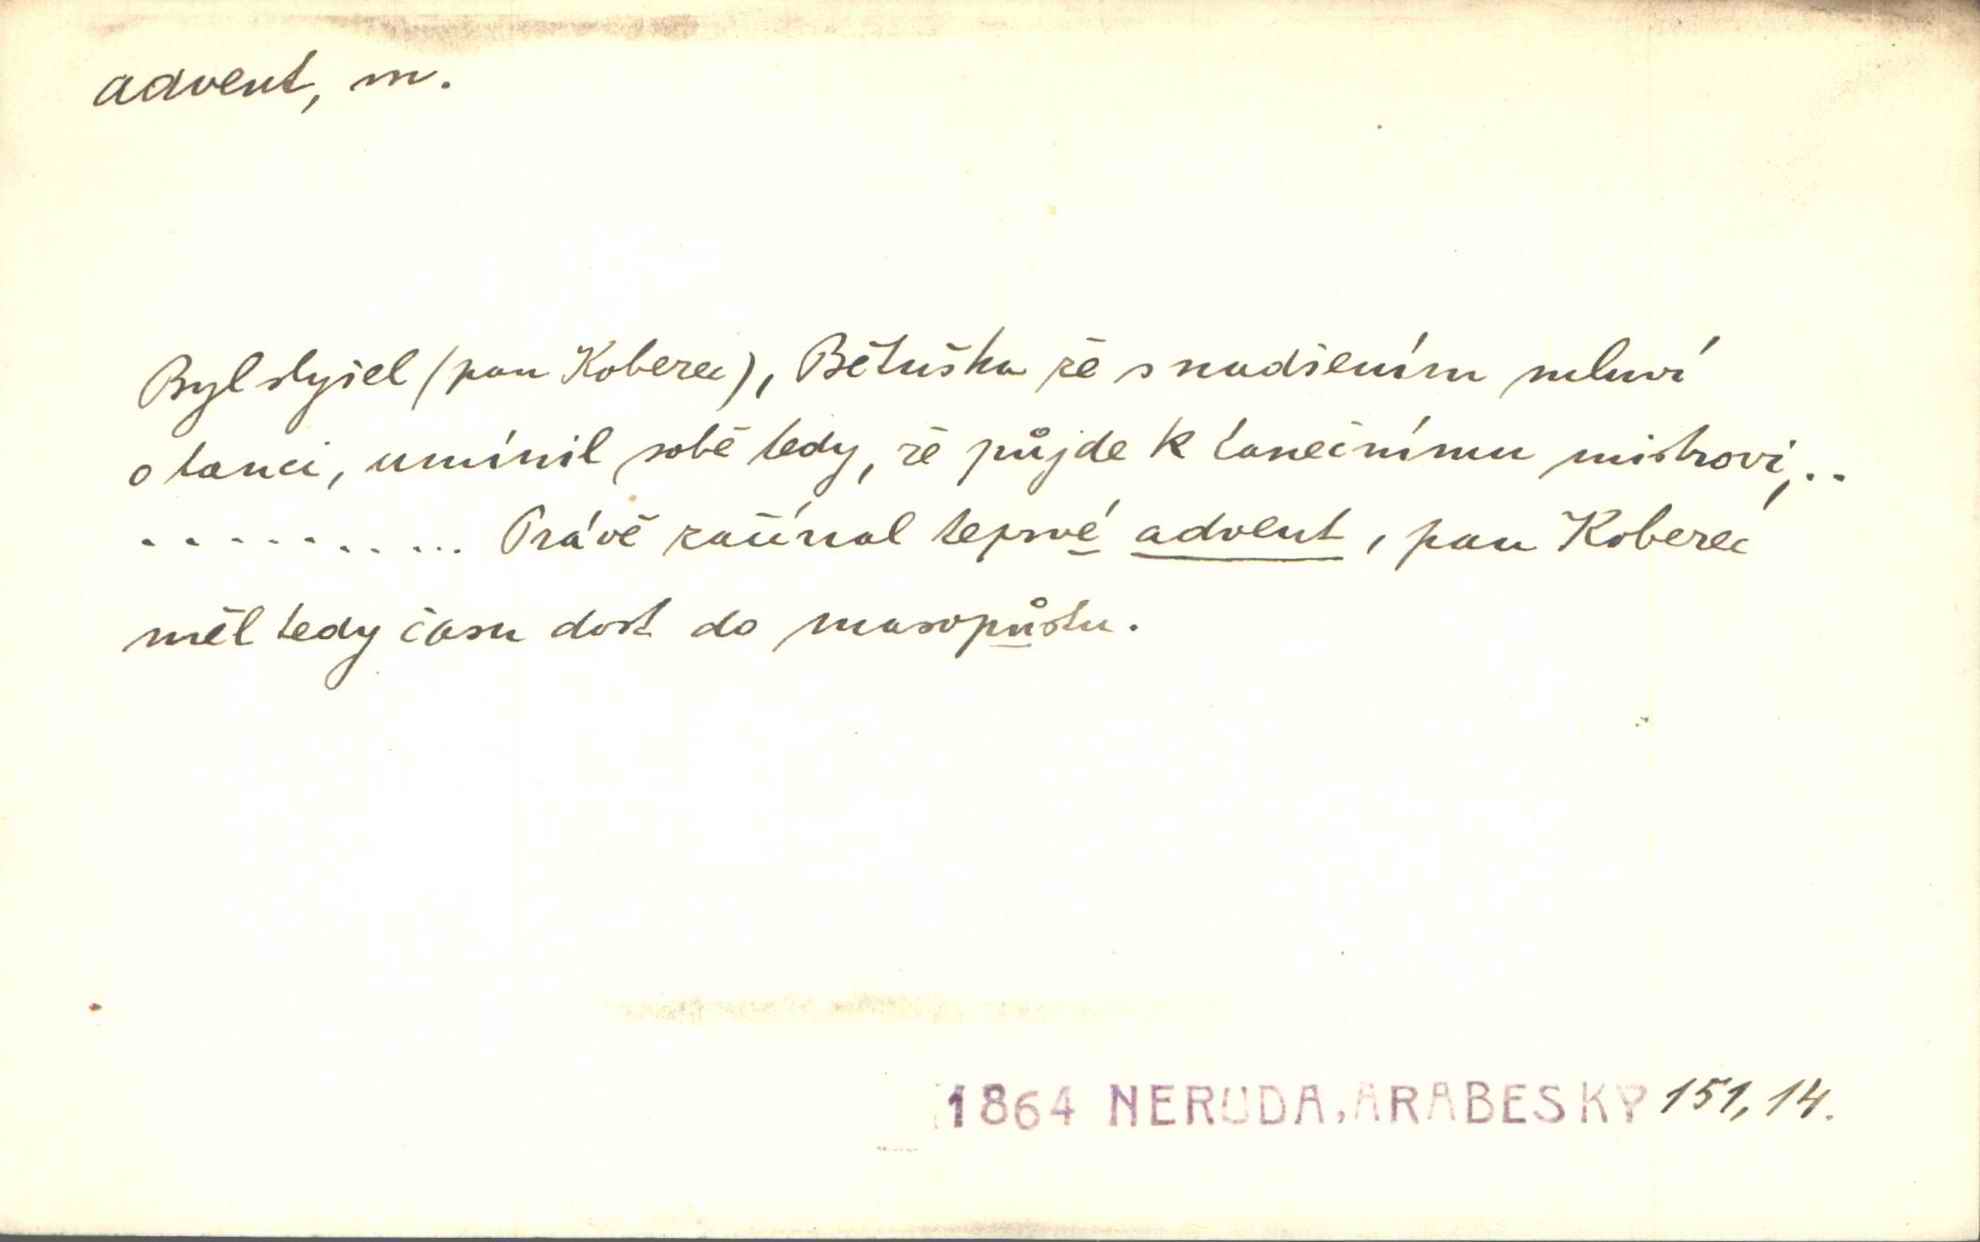 advent, m.
Byl slyšel (pan Koberec), Bětuška že s nadšením mluví
o tanci, umínil sobě tedy, že půjde k tanečnímu mistrovi,..
............ Právě začínal teprvé advent, pan Koberec
měl tedy času dost do masopůstu.
1864 NERUDA, ARABESKY 151, 14.